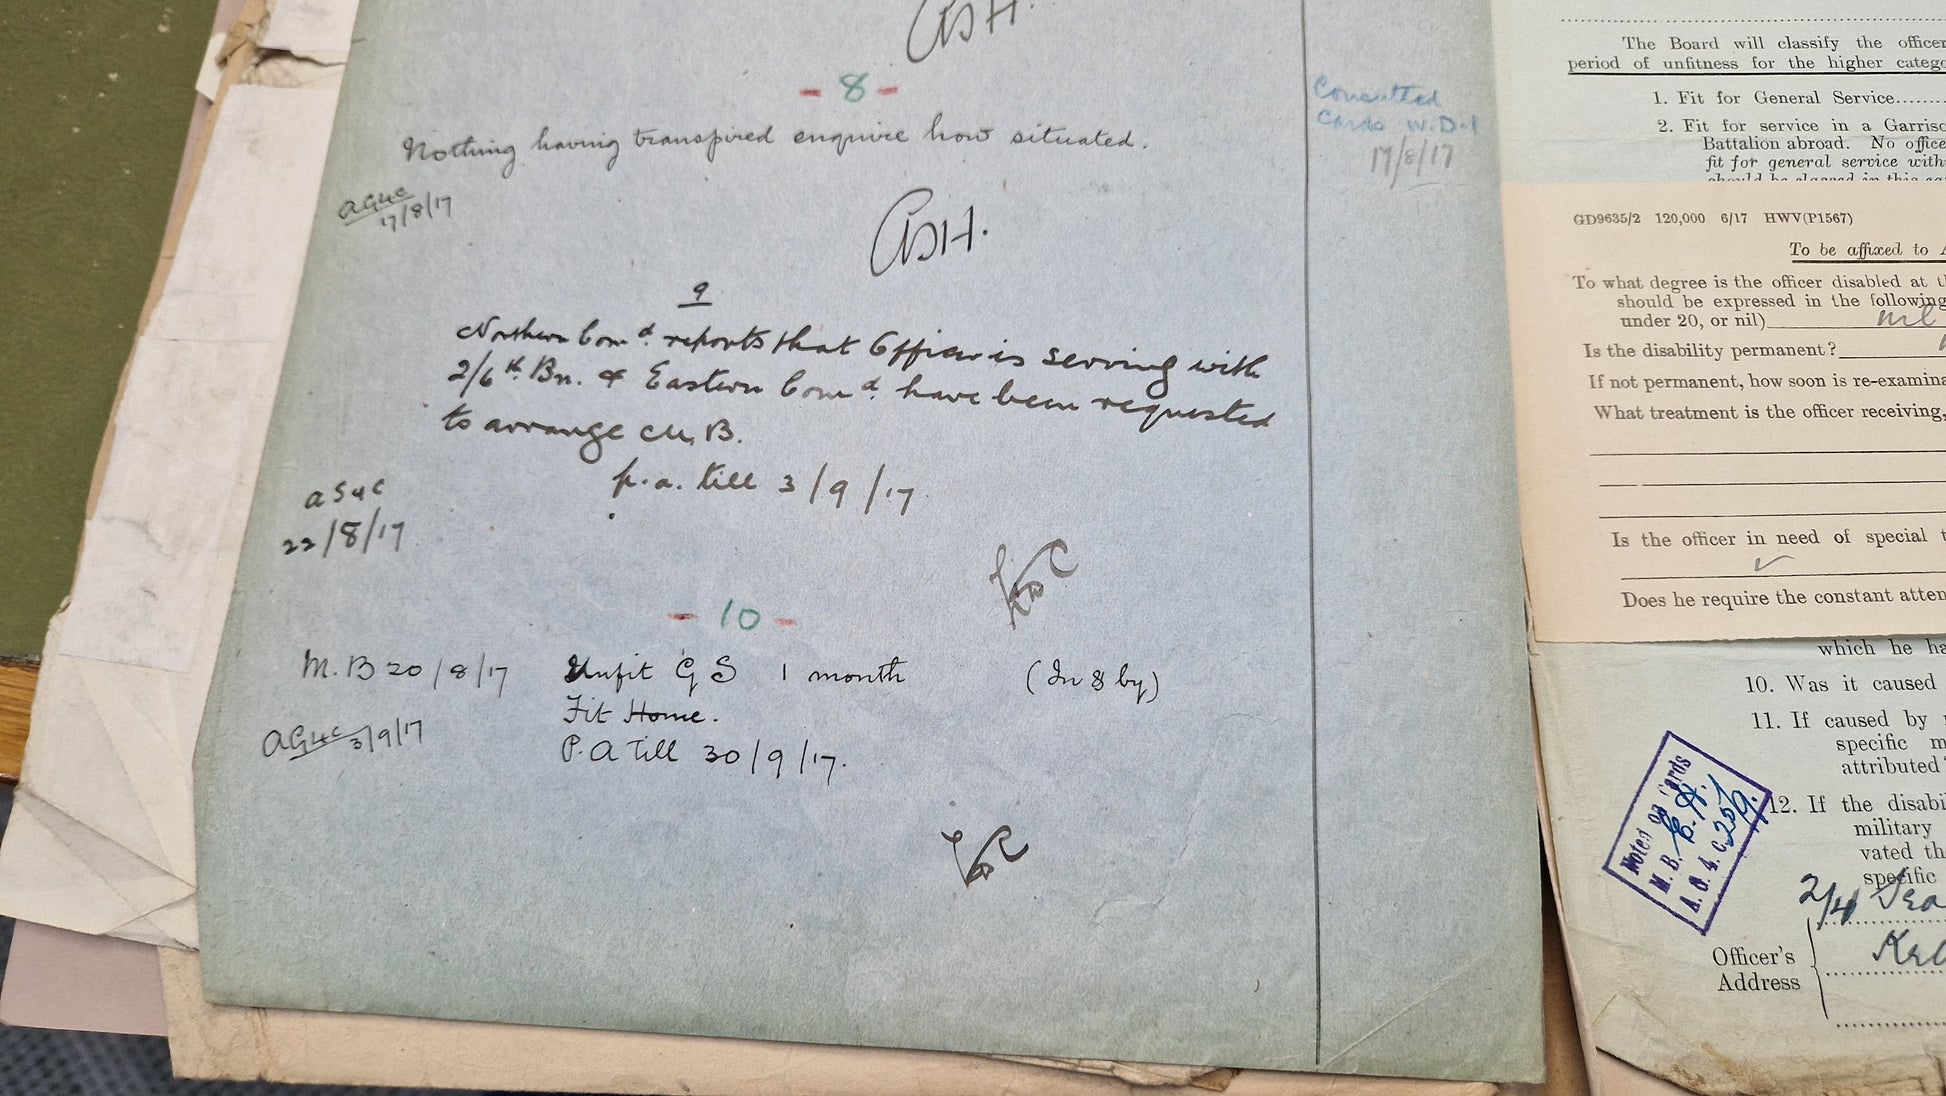 ASH.
- 8 -
Consulted
Cards W.D.1
17/8/17
Nothing having transpired enquire how situated.
AG4C
17/8/17
ASH.
9
Northern Comd. reports that Officer is serving with
2/6th Bn. & Eastern Comd. have been requested
to arrange M.B.
p.a. till 3/9/17
22/8/17
- 10 -
M.B 20/8/17 Unfit G S 1 month (In 8 by)
Fit Home.
AG4C 3/9/17
P.A till 30/9/17.
The Board will classify the officer
period of unfitness for the higher catego
1. Fit for General Service......
2. Fit for service in a Garriso
Battalion abroad. No office
fit for general service with
should be classed in this
GD9635/2 120,000 6/17 HWV(P1567)
To be affixed to A
To what degree is the officer disabled at t
should be expressed in the following
under 20, or nil) nil
Is the disability permanent?
If not permanent, how soon is re-examina
What treatment is the officer receiving,
Is the officer in need of special t
Does he require the constant atten
which he ha
10. Was it caused
11. If caused by
specific m
attributed
12. If the disabi
military
vated th
specific
Noted on Cards
M. B.
A. G. 4. c.
2/4
Officer's
Address